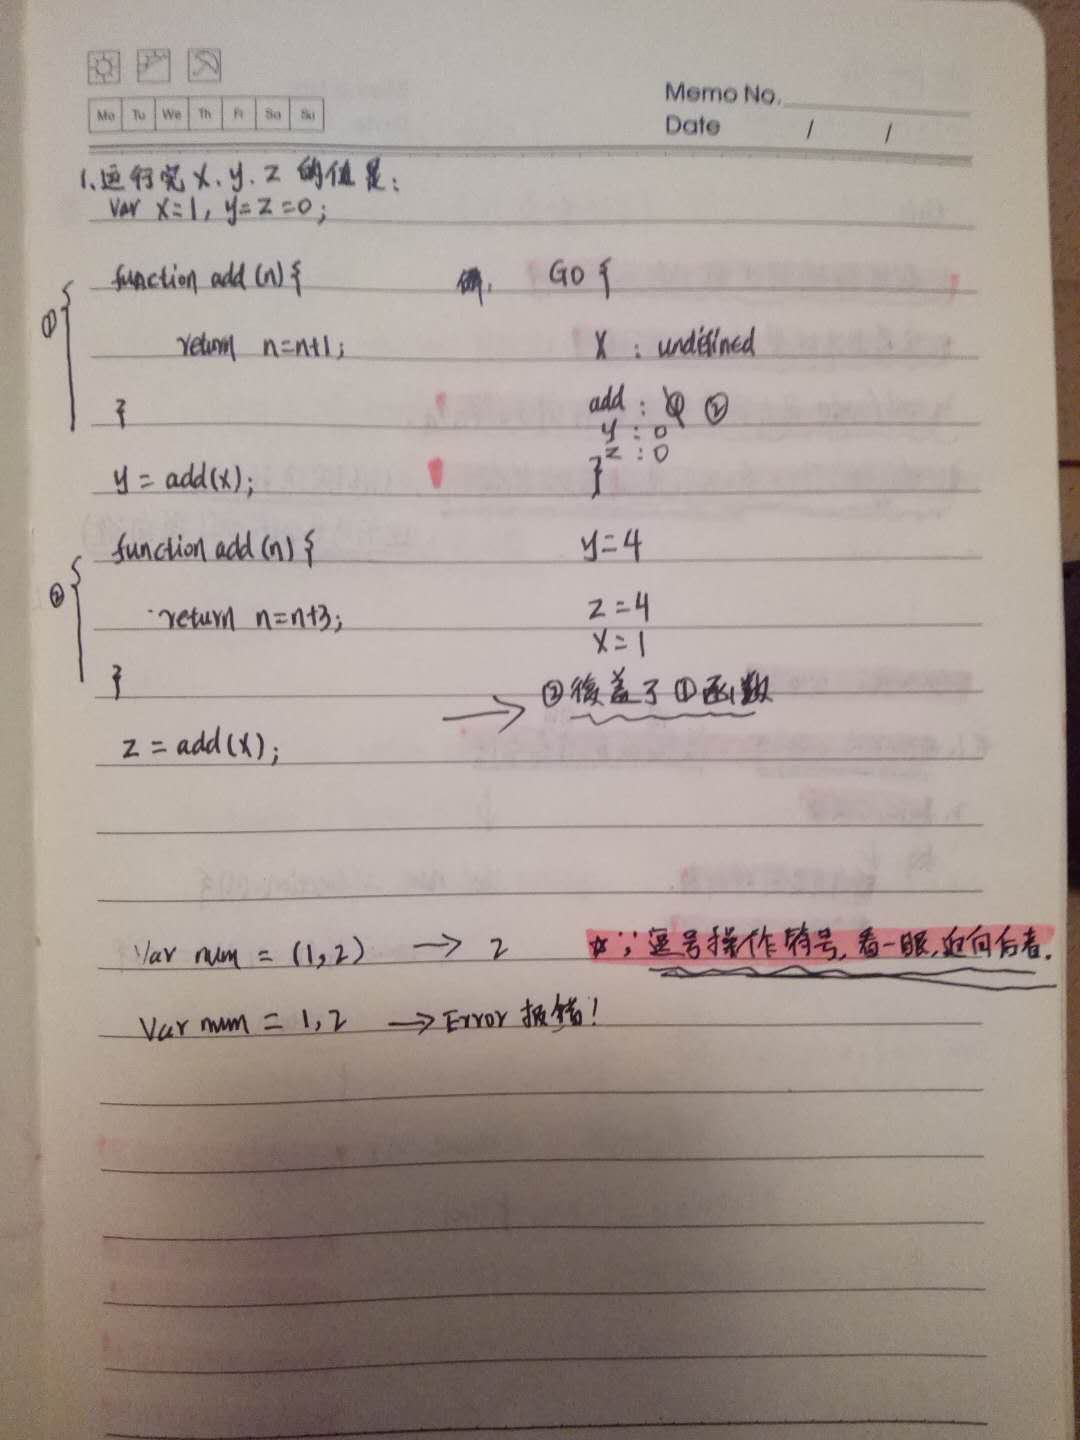 Mo Tu We Th Fr Sa Su
Memo No.
Date / /
1、运行完 x、y、z 的值是:
var x=1, y=z=0;
① function add(n){
return n=n+1;
}
y = add(x);
② function add(n){
return n=n+3;
}
z = add(x);
GO {
x : undefined
add : ① ②
y : 0
z : 0
}
y=4
z=4
x=1
→ ②覆盖了①函数
var num = (1,2) → 2
☆ "," 逗号操作符号,看一眼,返回后者.
var num = 1,2 → Error 报错!